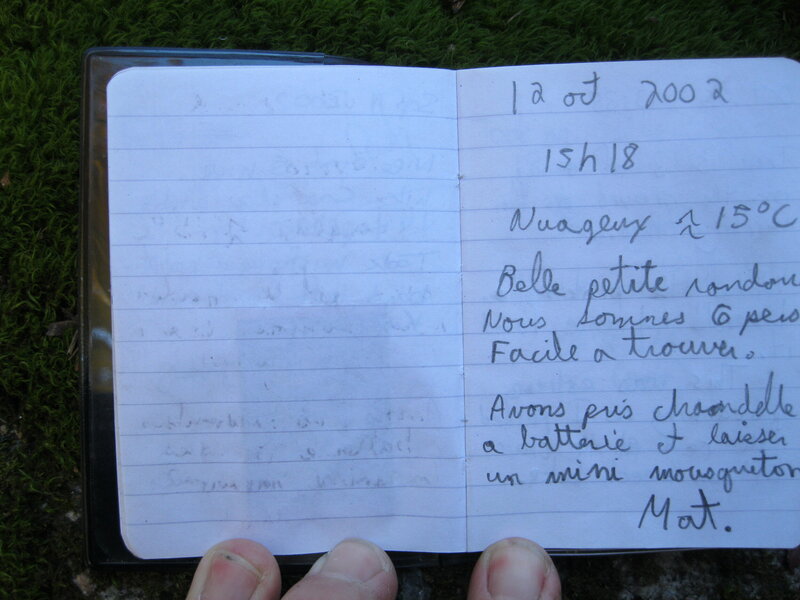 12 oct 2002
15h18
Nuageux ≈ 15°C
Belle petite randon
Nous sommes 6 pers
Facile a trouver.
Avons pris chandelle
a batterie et laisser
un mini mousqueton
Mat.